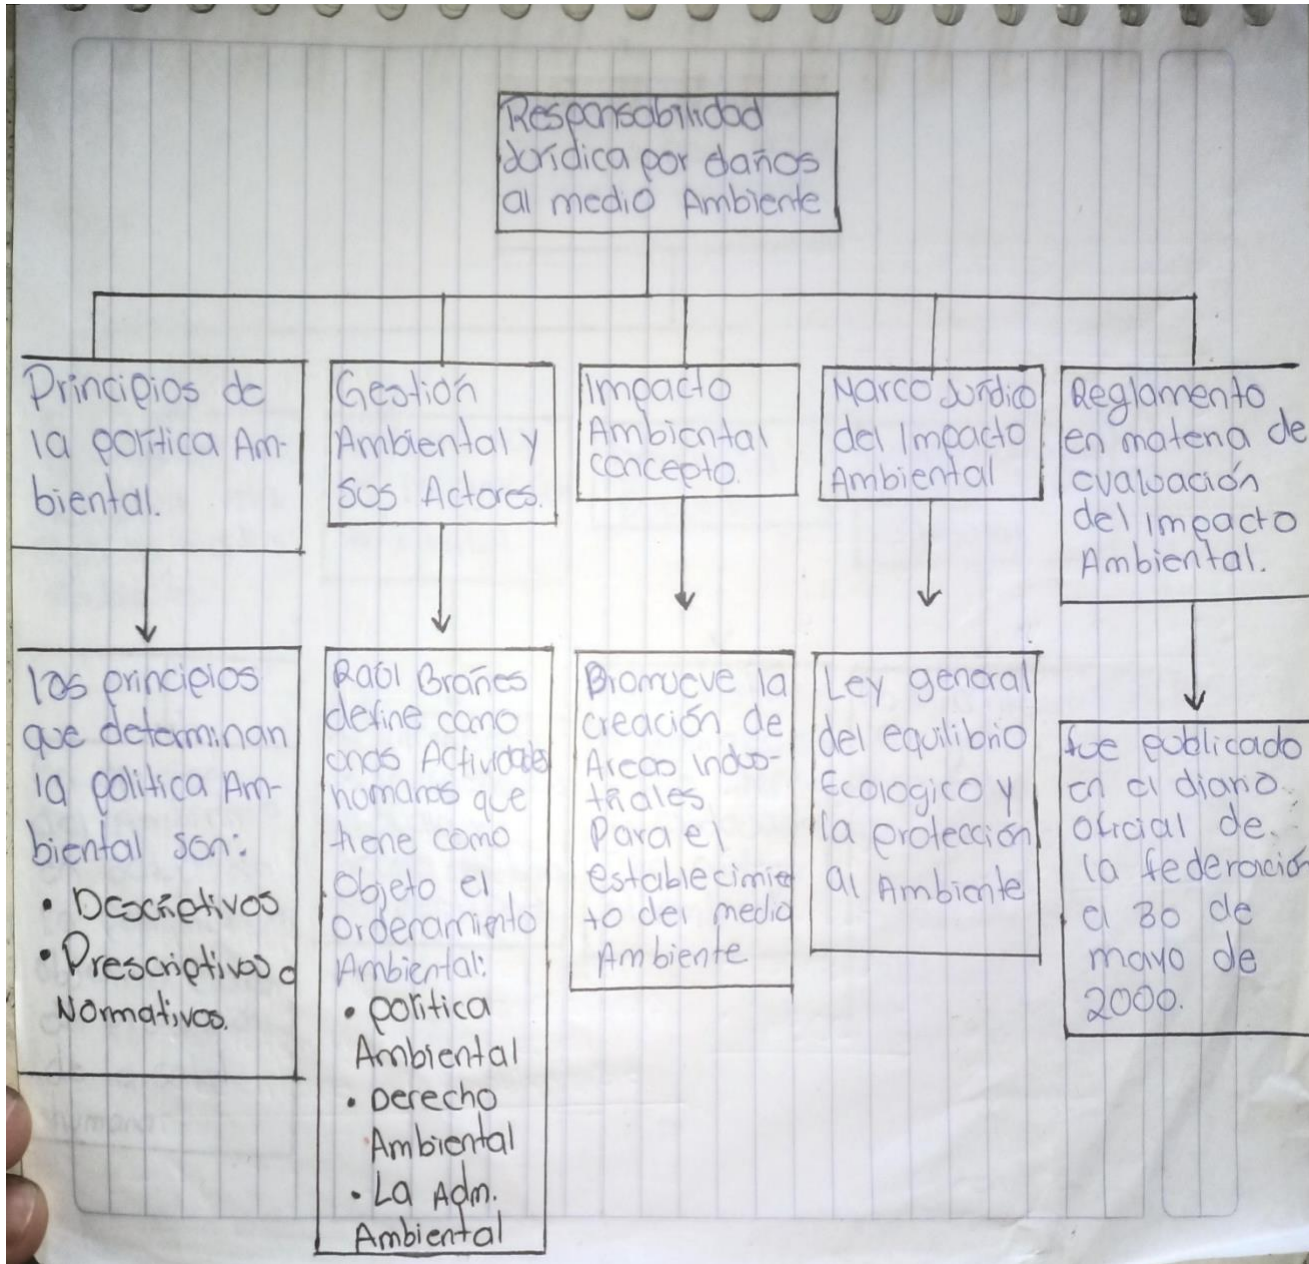 Responsabilidad
Jurídica por daños
al medio Ambiente
Principios de
la política Am-
biental.
Gestión
Ambiental y
sus Actores.
Impacto
Ambiental
concepto.
Marco Jurídico
del Impacto
Ambiental
Reglamento
en materia de
evaluación
del Impacto
Ambiental.
los principios
que determinan
la política Am-
biental son:
• Descriptivos
• Prescriptivos o
Normativos.
Raúl Brañes
define como
unas Actividades
humanas que
tiene como
Objeto el
Ordenamiento
Ambiental:
• política
Ambiental
• Derecho
Ambiental
• La Adm.
Ambiental
Promueve la
creación de
Areas Indus-
triales
Para el
establecimie
to del medio
Ambiente
Ley general
del equilibrio
Ecologico y
la protección
al Ambiente
fue publicado
en el diario
oficial de
la federación
el 30 de
mayo de
2000.